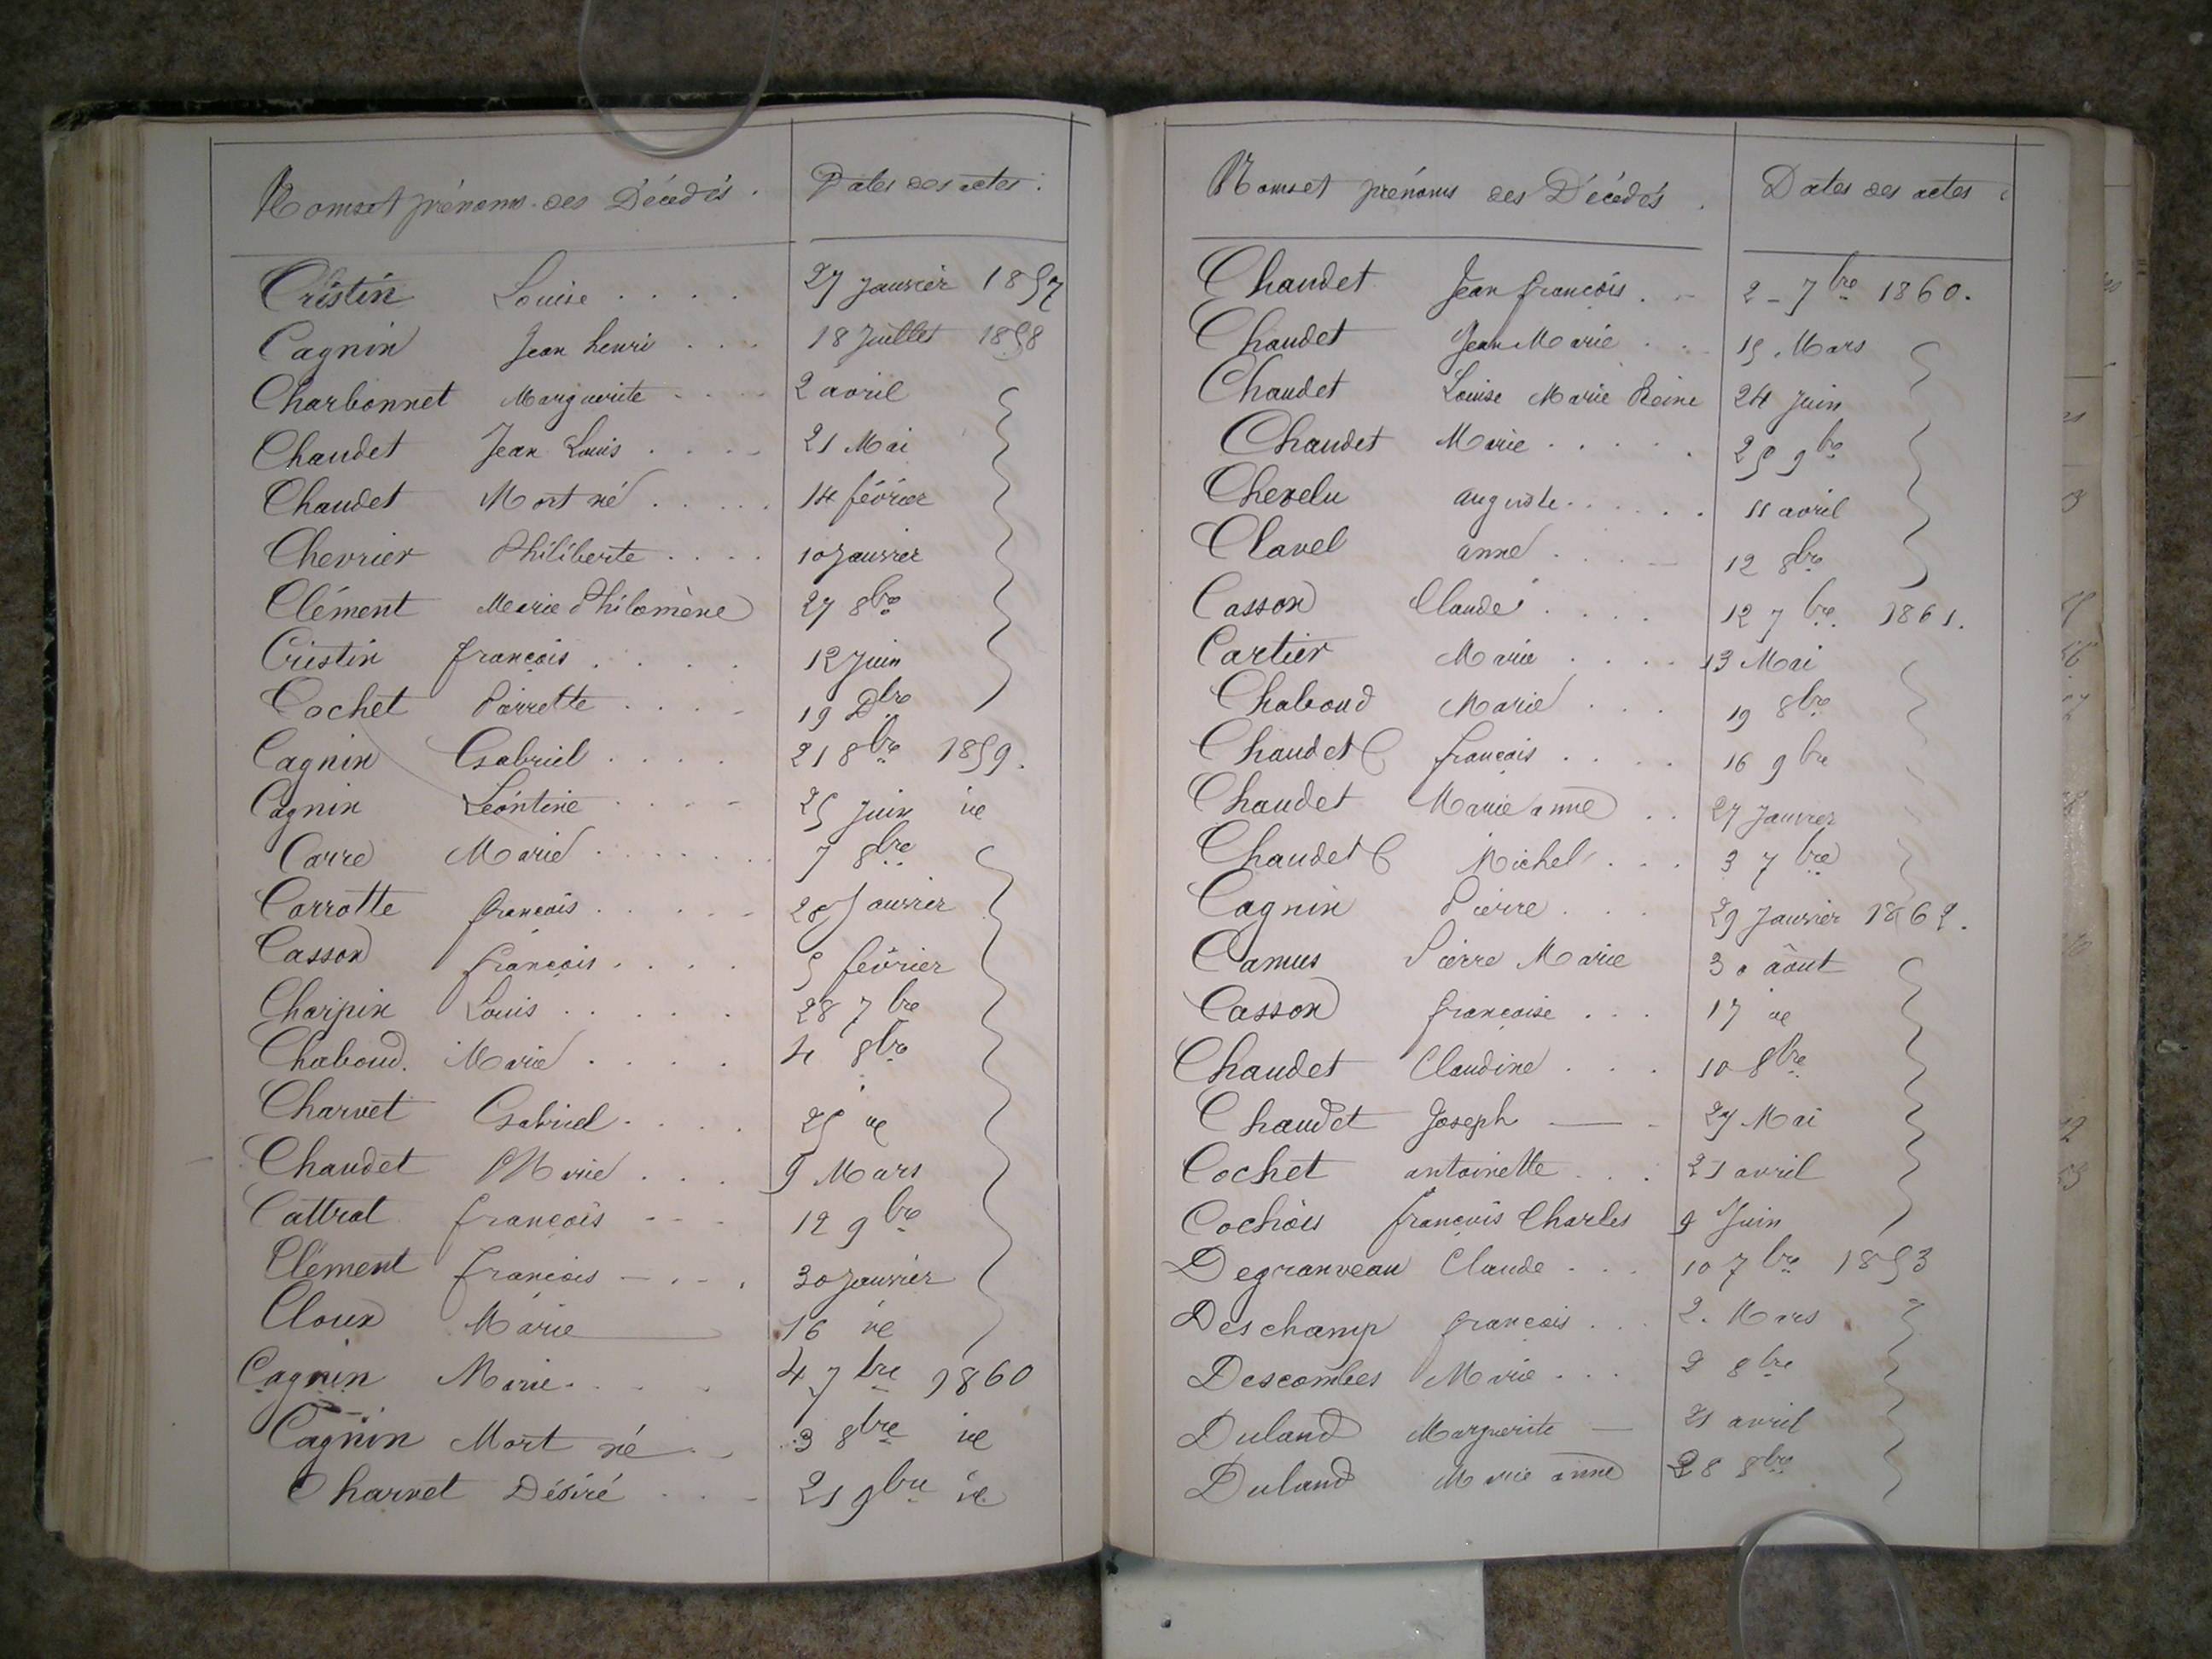 Noms et prénoms des Décédés. Dates des actes.
Cristin Louise .... 27 Janvier 1857
Cagnin Jean henri ... 18 Juillet 1858
Charbonnet Marguerite .... 2 avril
Chaudet Jean Louis .... 21 Mai
Chaudet Mort né ..... 14 février
Chevrier Philiberte .... 10 Janvier
Clément Marie Philomène 27 8bre
Cristin françois .... 12 Juin
Cochet Pierrette .... 19 Dbre
Cagnin Gabriel .... 21 8bre 1859.
Cagnin Léontine .... 25 Juin id
Carre Marie ....... 7 8bre
Carrotte françois ..... 28 Janvier
Casson françois .... 5 février
Charpin Louis ..... 28 7bre
Chaboud. Marie .... 4 8bre
Charvet Gabriel .... 25 id
Chaudet Marie ... 9 Mars
Cattrat françois --- 12 9bre
Clément françois — . - . 30 Janvier
Cloux Marie — 16 id
Cagnin Marie ... 4 7bre 1860
Cagnin Mort né .. 3 8bre id
Charvet Désiré ... 21 9bre id
Noms et prénoms des Décédés. Dates des actes
Chaudet Jean françois . - 2 - 7bre 1860.
Chaudet Jean Marie ... 15. Mars
Chaudet Louise Marie Reine 24 Juin
Chaudet Marie ..... 25 9bre
Chevelu auguste ...... 11 avril
Clavel anne .... 12 8bre
Casson Claude .... 12 7bre. 1861.
Cartier Marie .... 13 Mai
Chaboud Marie ... 19 8bre
Chaudet C françois .... 16 9bre
Chaudet Marie anne .. 27 Janvier
Chaudet C Michel ... 3 7bre
Cagnin Pierre ... 29 Janvier 1862.
Camus Pierre Marie 30 août
Casson françoise ... 17 id
Chaudet Claudine ... 10 8bre
Chaudet Joseph — - 27 Mai
Cochet antoinette ... 21 avril
Cochois françois Charles 9 Juin
Degranveau Claude ... 10 7bre 1853
Deschamp françois ... 2. Mars
Descombes Marie ... 2 8bre
Duland Marguerite — 21 avril
Duland Marie anne 28 8bre